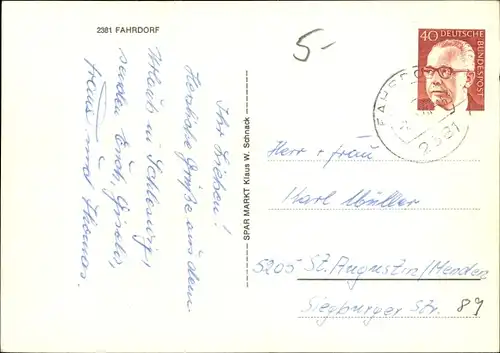 2381 FAHRDORF
Ihr Lieben!
Herzliche Grüße aus dem
Urlaub in Schleswig,
senden Euch, Gisela,
Hans und Thomas.
SPAR MARKT Klaus W. Schnack
5-
40 DEUTSCHE BUNDESPOST
FAHRDORF
2381
Herr + Frau
Karl Müller
5205 St. Augustin/Menden
Siegburger Str. 89